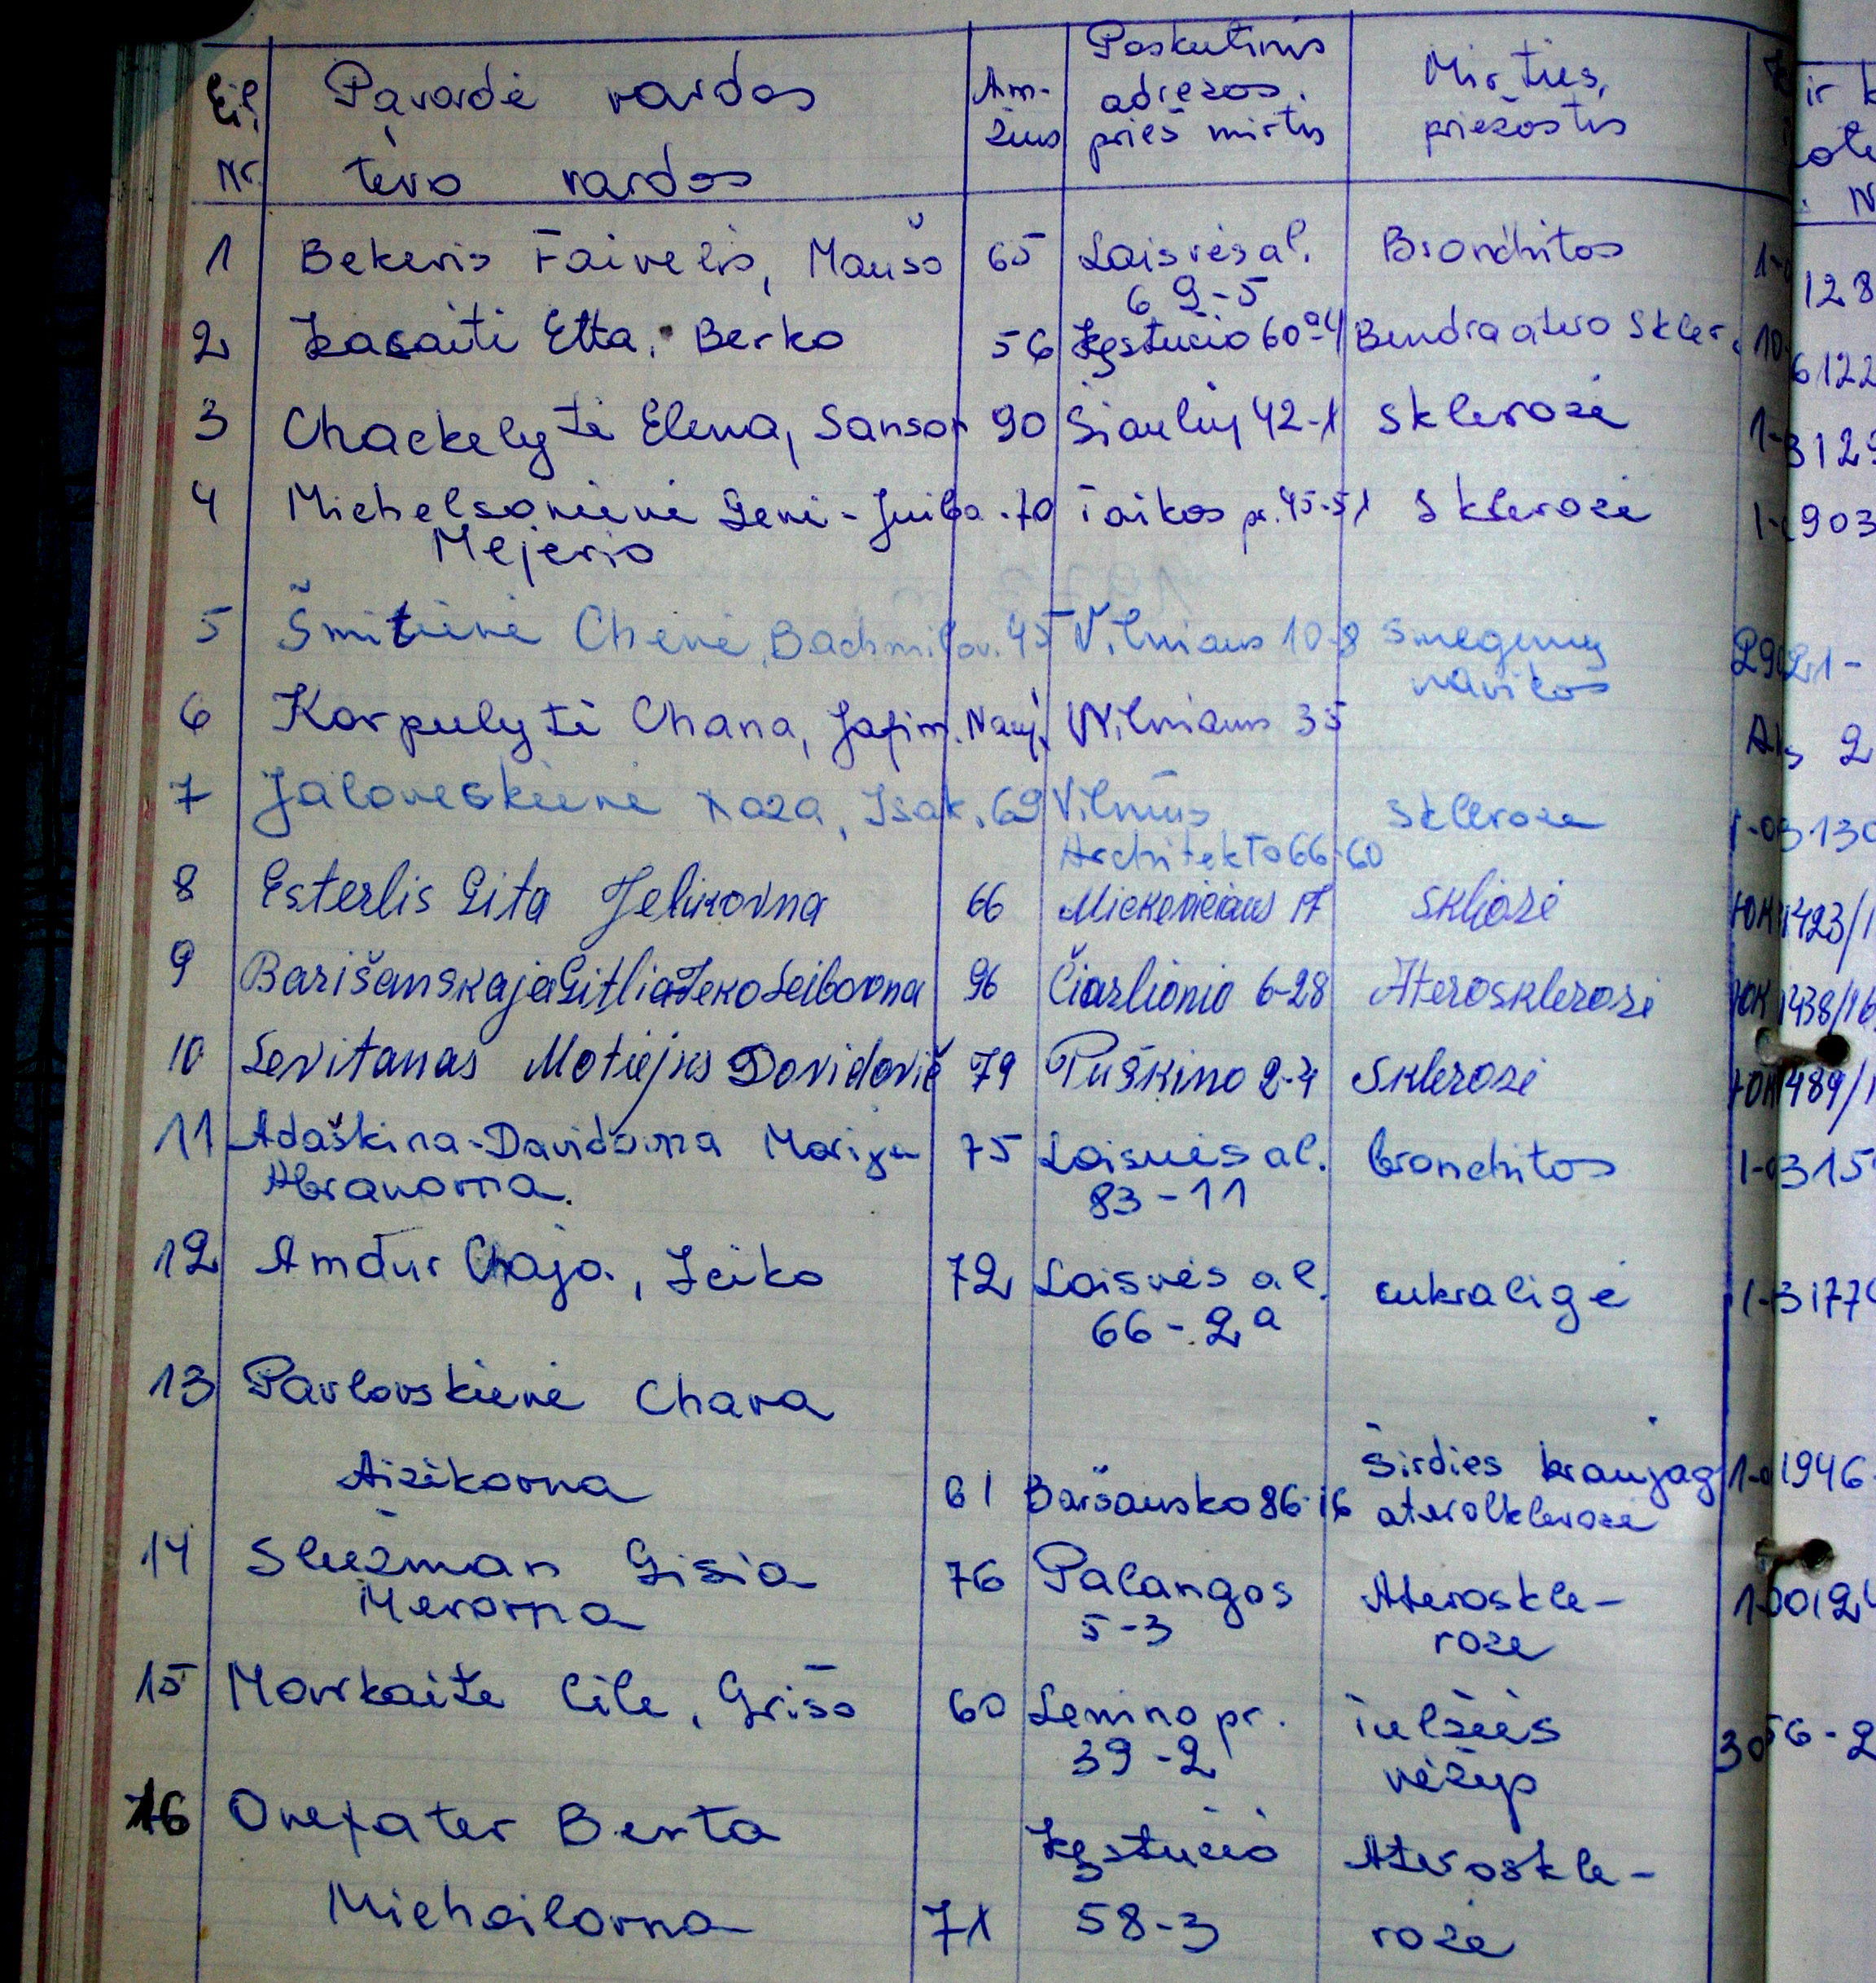 Eil. Nr. Pavardė vardas tėvo vardas Amžius Paskutinis adresas prieš mirtį Mirties priežastis
1 Bekeris Faivelis, Maušo 65 Laisvės al. Bronchitas
69-5 128
2 Kasaitė Etta, Berko 56 Kęstučio 60ª-4 Bendra atero skler. 10-
6122
3 Chackelytė Elena, Sanson 90 Šiaulių 42-1 Sklerozė 1-
3129
4 Michelsonienė Leni-Juiba 70 Taikos pr. 45-51 Sklerozė 1-
Mejerio 903
5 Šmitienė Chenė, Bachmilov. 45 Vilniaus 10-8 Smegenų
navikas 21-
6 Karpulytė Chana, Jafim. Nauj. Vilniaus 35
2
7 Jaloveskienė Roza, Isak. 69 Vilnius Sklerozė
Architektų 66-60 3130
8 Esterlis Gita 66 Mickevičiaus 17 Skliozė 1423/1
9 Barišanskaja Leibovna 96 Čiurlionio 6-28 Aterosklerozė 1438/16
10 Levitanas Motiejus Dovidovič 79 Puškino 2-4 Sklerozė 1489/1
11 Adaškina-Davidovna Marija 75 Laisvės al. bronchitas 315
Abramovna. 83-11
12 Amdur Chaja, Leiko 72 Laisvės al. cukraligė 3177
66-2ª
13 Pavlovskienė Chava
Aizikovna 61 Baršausko 86-16 Širdies kraujag 1946
aterosklerozė
14 Sluzman Gisia 76 Palangos Ateroskle-
Merovna 5-3 rozė
15 Movkaitė Cilė, Grišo 60 Lenino pr. tulžies
39-2 vėžys 56-2
16 Onefater Berta Kęstučio Ateroskle-
Michailovna 71 58-3 rozė